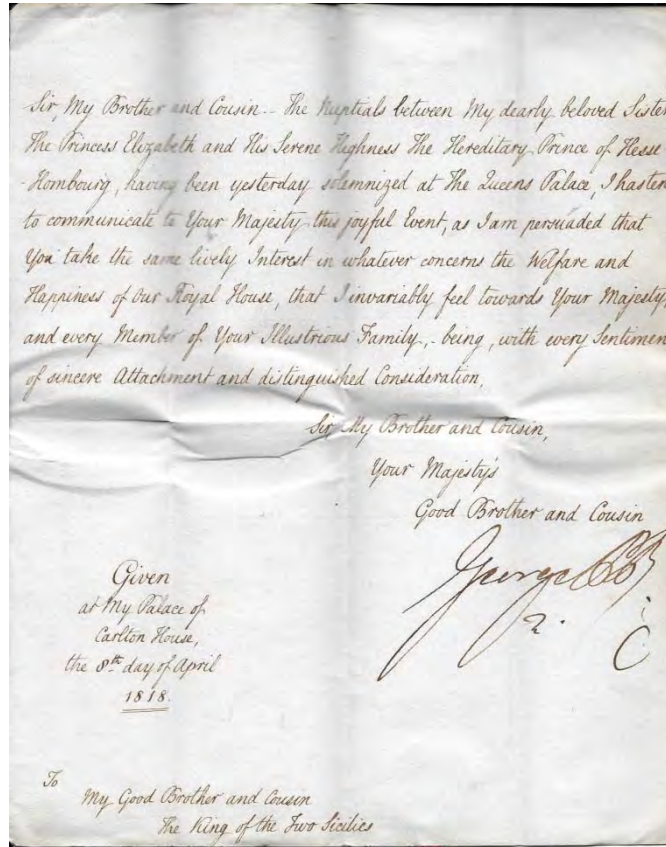 Sir, My Brother and Cousin.. The Nuptials between My dearly beloved Sister
The Princess Elizabeth and His Serene Highness The Hereditary Prince of Hesse
-Hombourg, having been yesterday solemnized at The Queens Palace, I hasten
to communicate to Your Majesty this joyful Event, as I am persuaded that
You take the same lively Interest in whatever concerns the Welfare and
Happiness of Our Royal House, that I invariably feel towards Your Majesty
and every Member of Your Illustrious Family,- being, with every Sentimen
of sincere Attachment and distinguished Consideration,
Sir, My Brother and Cousin,
Your Majesty's
Good Brother and Cousin
George
Given
at My Palace of
Carlton House,
the 8th day of April
1818.
To
My Good Brother and Cousin
The King of the Two Sicilies